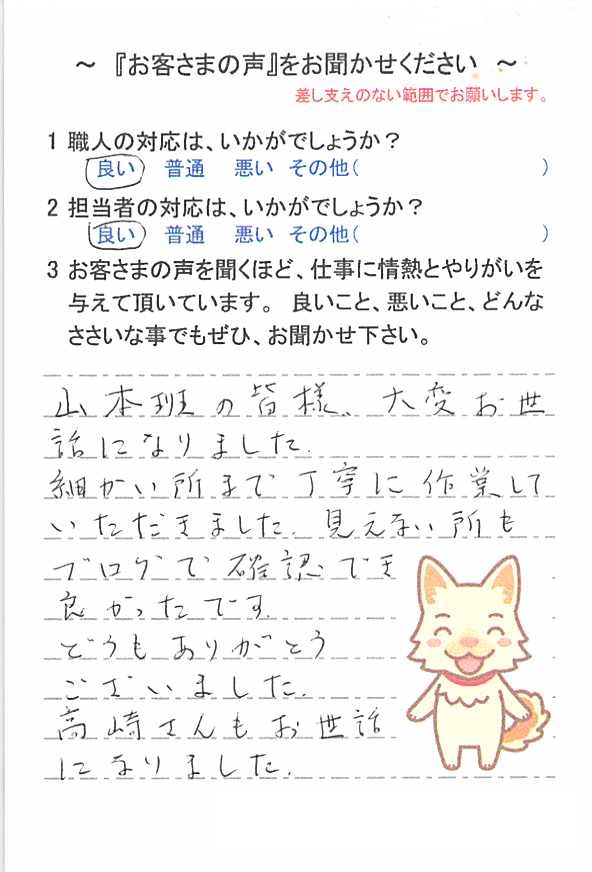 ～ 『お客さまの声』をお聞かせください ～
差し支えのない範囲でお願いします。
1 職人の対応は、いかがでしょうか？
良い 普通 悪い その他( )
2 担当者の対応は、いかがでしょうか？
良い 普通 悪い その他( )
3 お客さまの声を聞くほど、仕事に情熱とやりがいを
与えて頂いています。 良いこと、悪いこと、どんな
ささいな事でもぜひ、お聞かせ下さい。
山本班の皆様、大変お世
話になりました.
細かい所まで丁寧に作業して
いただきました. 見えない所も
ブログで確認でき
良かったです.
どうもありがとう
ございました.
高崎さんもお世話
になりました.